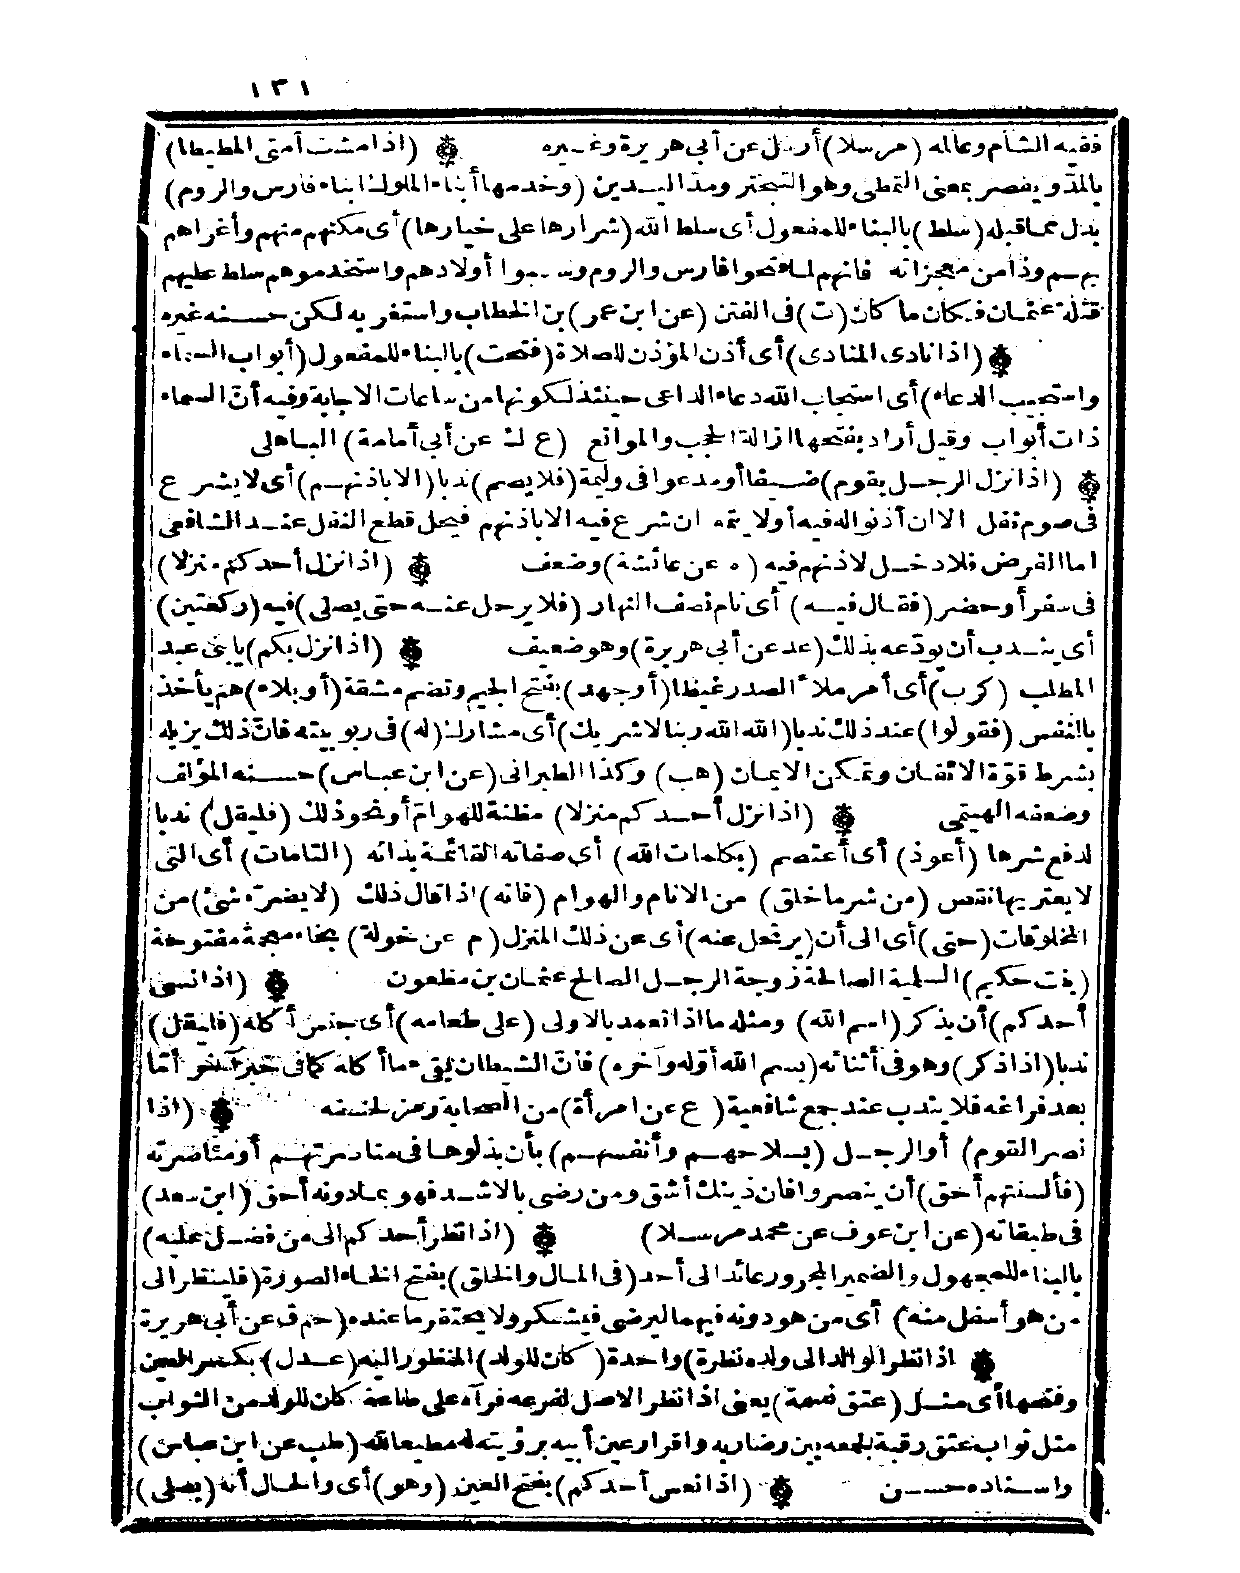 ١٣١
فقيه الشام وعالمه (مرسلا) أرسل عن أبى هريرة وغيره (اذا مشت أمتى المطيطا)
بالمد ويقصر بمعنى التمطى وهو التبختر ومد اليدين (وخدمها أبناء الملوك أبناء فارس والروم)
بدل مما قبله (سلط) بالبناء للمفعول أى سلط الله (شرارها على خيارها) أى مكنهم منهم وأغراهم
بهم وذا من معجزاته فانهم لما فتحوا فارس والروم وسبوا أولادهم واستخدموهم سلط عليهم
قتلة عثمان فكان ما كان (ت) فى الفتن (عن ابن عمر) بن الخطاب واستغربه لكن حسنه غيره
(اذا نادى المنادى) أى أذن المؤذن للصلاة (فتحت) بالبناء للمفعول (أبواب السماء
واستجيب الدعاء) أى استجاب الله دعاء الداعى حينئذ لكونها من ساعات الاجابة وفيه أن السماء
ذات أبواب وقيل أراد بفتحها ازالة الحجب والموانع (ع ك عن أبى أمامة) الباهلى
(اذا نزل الرجل بقوم) ضيفا أو مدعوا فى وليمة (فلا يصم) ندبا (الا باذنهم) أى لا يشرع
فى صوم نفل الا ان أذنوا له فيه أو لا يتمه ان شرع فيه الا باذنهم فيحل قطع النفل عند الشافعى
اما الفرض فلا دخل لاذنهم فيه (ه عن عائشة) وضعف (اذا نزل أحدكم منزلا)
فى سفر أو حضر (فقال فيه) أى نام نصف النهار (فلا يرحل عنه حتى يصلى) فيه (ركعتين)
أى يندب أن يودعه بذلك (عد عن أبى هريرة) وهو ضعيف (اذا نزل بكم) يا بنى عبد
المطلب (كرب) أى أمر ملأ الصدر غيظا (أو جهد) بفتح الجيم وتضم مشقة (أو بلاء) هم يأخذ
بالنفس (فقولوا) عند ذلك ندبا (الله الله ربنا لا شريك) أى مشارك (له) فى ربوبيته فان ذلك يزيله
بشرط قوة الاتقان وتمكن الايمان (هب) وكذا الطبرانى (عن ابن عباس) حسنه المؤلف
وضعفه الهيتمى (اذا نزل أحدكم منزلا) مظنة للهوام أو نحو ذلك (فليقل) ندبا
لدفع شرها (أعوذ) أى أعتصم (بكلمات الله) أى صفاته القائمة بذاته (التامات) أى التى
لا يعتريها نقص (من شر ما خلق) من الانام والهوام (فانه) اذا قال ذلك (لا يضره شئ) من
المخلوقات (حتى) أى الى أن (يرتحل عنه) أى عن ذلك المنزل (م عن خولة) بخاء معجمة مفتوحة
(بنت حكيم) السلمية الصالحة زوجة الرجل الصالح عثمان بن مظعون (اذا نسى
أحدكم) أن يذكر (اسم الله) ومثله ما اذا تعمد بالاولى (على طعامه) أى جنس أكله (فليقل)
ندبا (اذا ذكر) وهو فى أثنائه (بسم الله أوله وآخره) فان الشيطان يقئ ما أكله كما فى خبر آخر أما
بعد فراغه فلا يندب عند جمع شافعية (ع عن امرأة) من الصحابة ورمز لحسنه (اذا
نصر القوم) أو الرجل (بسلاحهم وأنفسهم) بأن بذلوها فى مناصرتهم أو مناصرته
(فألسنتهم أحق) أن ينصروا فان ذينك أشق ومن رضى بالاشد فهو بما دونه أحق (ابن سعد)
فى طبقاته (عن ابن عوف عن محمد مرسلا) (اذا نظر أحدكم الى من فضل عليه)
بالبناء للمجهول والضمير المجرور عائد الى أحد (فى المال والخلق) بفتح الخاء الصورة (فلينظر الى
من هو أسفل منه) أى من هو دونه فيهما ليرضى فيشكر ولا يحتقر ما عنده (حم ق عن أبى هريرة
اذا نظر الوالد الى ولده نظرة) واحدة (كان للولد) المنظور اليه (عدل) بكسر العين
وفتحها أى مثل (عتق نسمة) يعنى اذا نظر الاصل لفرعه فرآه على طاعة كان للولد من الثواب
مثل ثواب عتق رقبة لجمعه بين رضا ربه واقرار عين أبيه برؤيته له مطيعا لله (طب عن ابن عباس)
واسناده حسن (اذا نعس أحدكم) بفتح العين (وهو) أى والحال أنه (يصلى)